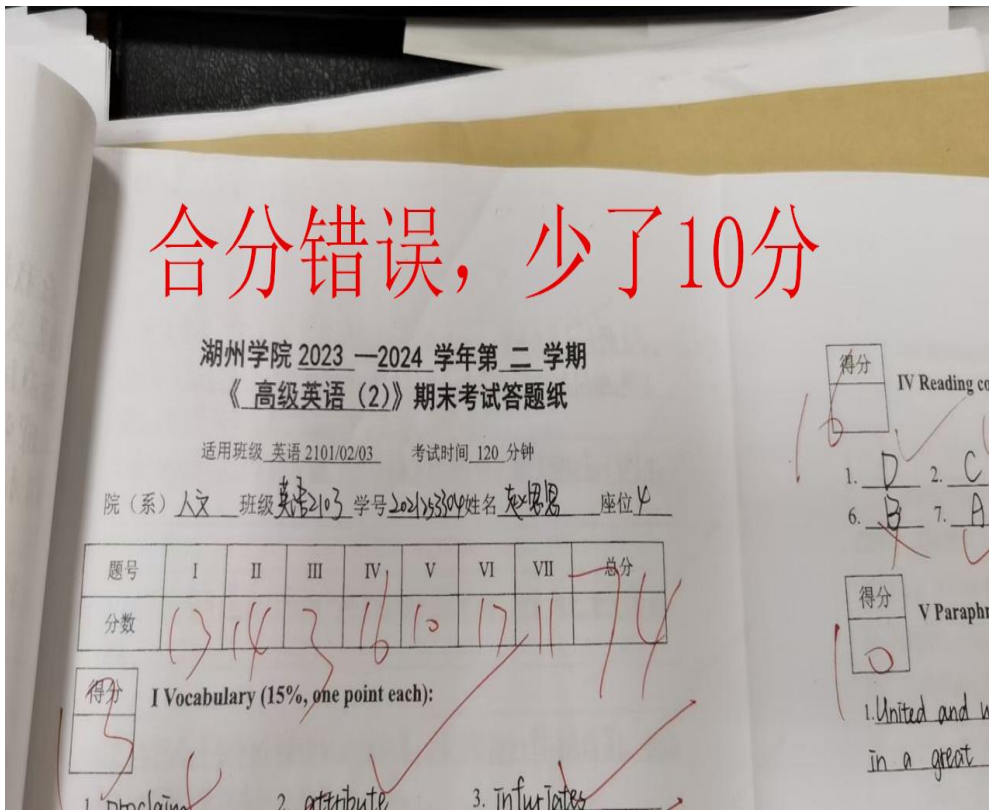 合分错误，少了10分
湖州学院 2023 —2024 学年第 二 学期
《 高级英语（2）》期末考试答题纸
适用班级 英语 2101/02/03 考试时间 120 分钟
院（系）人文 班级 英语2103 学号 2021253304 姓名 赵思思 座位 4
题号 I II III IV V VI VII 总分
分数 13 14 3 16 10 17 11 74
得分 I Vocabulary (15%, one point each):
13
1. proclaim 2. attribute 3. infuriates
得分 IV Reading co
16
1. D 2. C
6. B 7. A
得分 V Paraphr
10
1. United and w
in a great